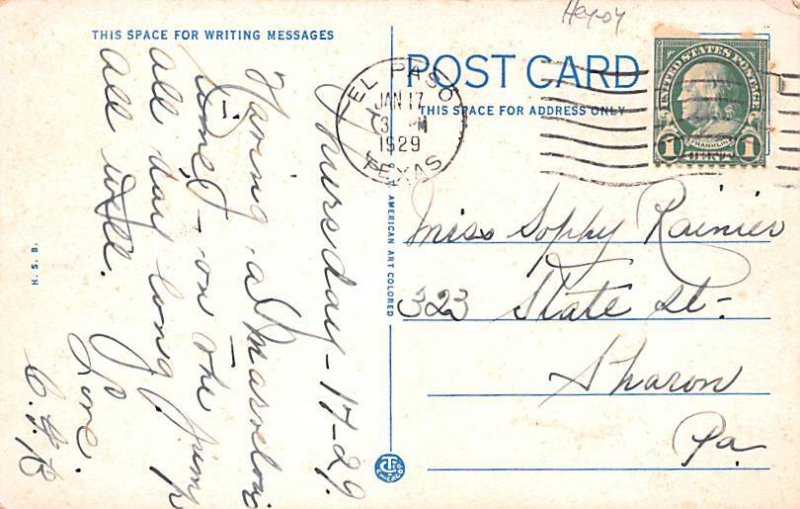 THIS SPACE FOR WRITING MESSAGES
Thursday - 17-29.
Having a marvelous
time - on the jump
all day long.
All well.
Love.
POST CARD
THIS SPACE FOR ADDRESS ONLY
EL PASO
JAN 17
3 PM
1929
TEXAS
UNITED STATES POSTAGE
FRANKLIN
1 1
Miss Sophy Rainier
323 State St-
Sharon
Pa.
AMERICAN ART COLORED
H. S. B.
CHICAGO